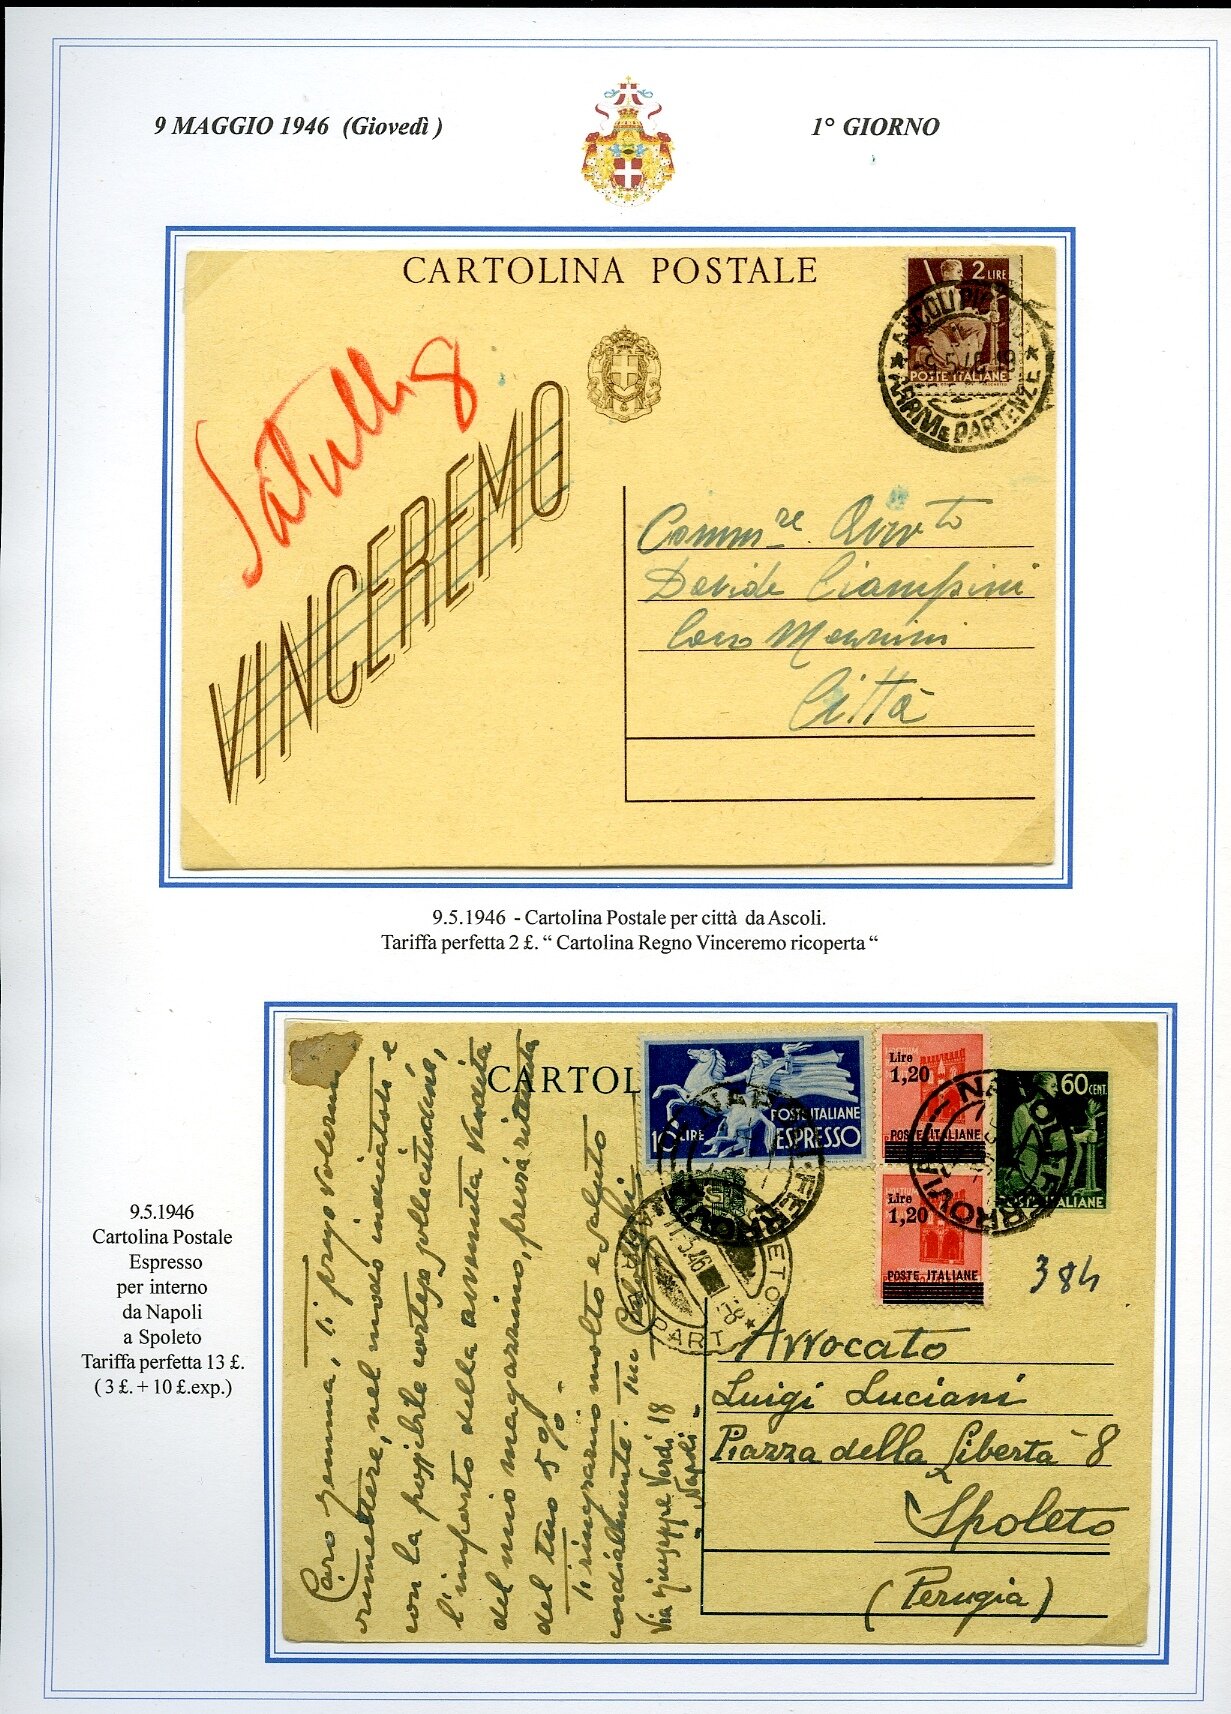 9 MAGGIO 1946 (Giovedì )
1° GIORNO
CARTOLINA POSTALE
2 LIRE
POSTE ITALIANE
ASCOLI
ARRIVI E PARTENZE
VINCEREMO
Comm.re Avv.to
Davide Ciampini
Corso Mazzini
Città
9.5.1946 - Cartolina Postale per città da Ascoli.
Tariffa perfetta 2 £. “ Cartolina Regno Vinceremo ricoperta “
CARTOL
POSTE ITALIANE
10 LIRE ESPRESSO
Lire
1,20
POSTE ITALIANE
Lire
1,20
POSTE ITALIANE
60 CENT.
ITALIANE
NAPOLI FERROVIA
384
Avvocato
Luigi Luciani
Piazza della Libertà 8
Spoleto
(Perugia)
ti prego volermi
rimettere, nel modo indicatoti e
con la possibile cortese sollecitudine,
l'importo della avvenuta vendita
del mio magazzino, previa ritenuta
del tuo 5% -
Ti ringrazio molto e saluto
cordialmente.
Via Giuseppe Verdi 18
- Napoli -
9.5.1946
Cartolina Postale
Espresso
per interno
da Napoli
a Spoleto
Tariffa perfetta 13 £.
( 3 £. + 10 £.exp.)